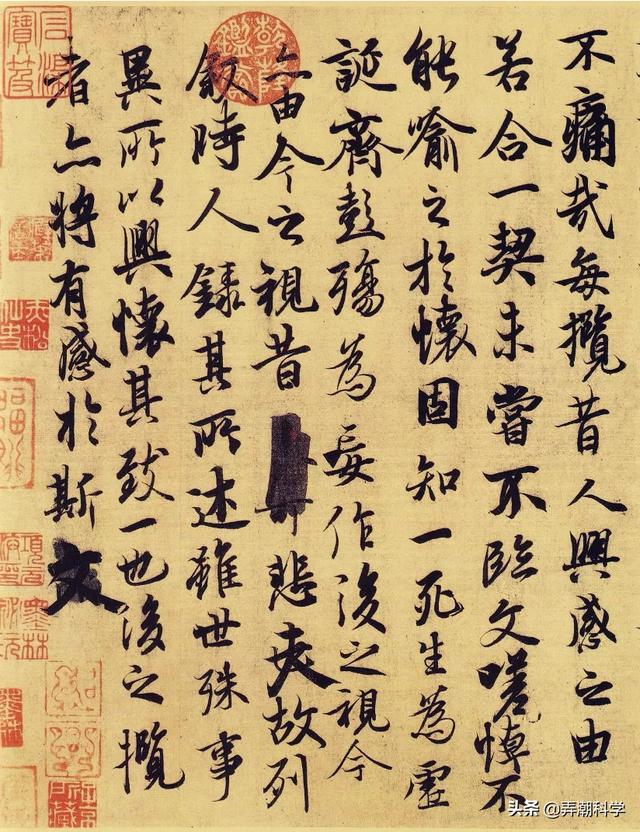 不痛哉每攬昔人興感之由
若合一契未嘗不臨文嗟悼不
能喻之於懷固知一死生為虛
誕齊彭殤為妄作後之視今
亦由今之視昔悲夫故列
敘時人錄其所述雖世殊事
異所以興懷其致一也後之攬
者亦將有感於斯文
乾隆鑑賞
头条 @弄潮科学